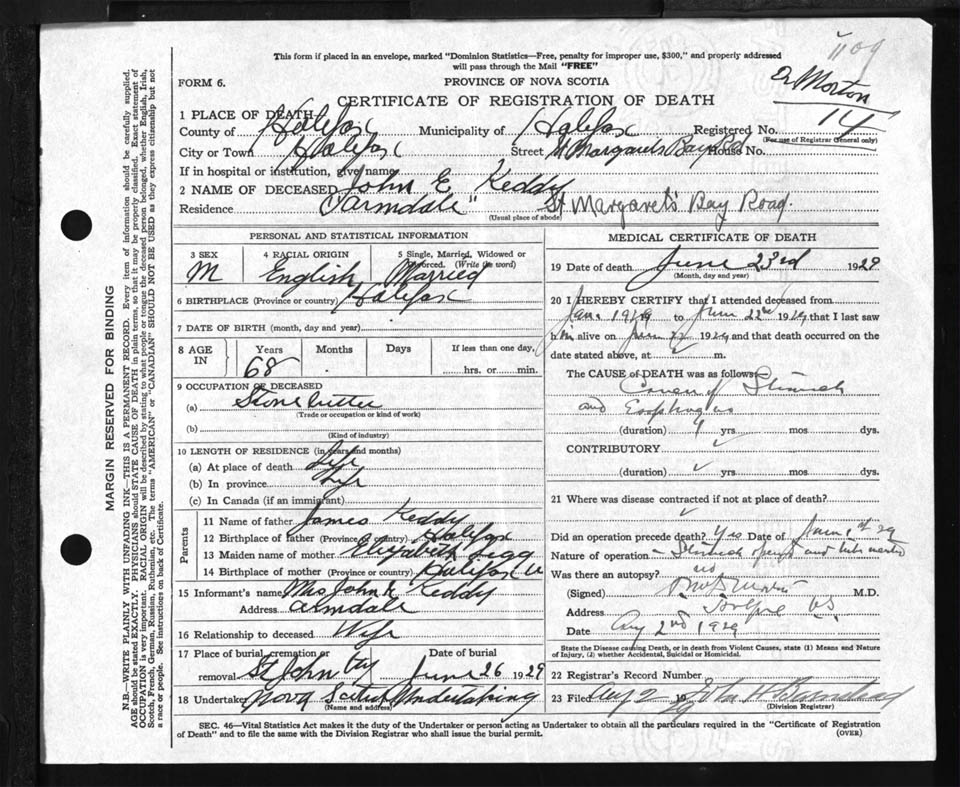 1109
This form if placed in an envelope, marked "Dominion Statistics—Free, penalty for improper use, $300," and properly addressed
will pass through the Mail "FREE"
FORM 6.
PROVINCE OF NOVA SCOTIA
Dr Morton
CERTIFICATE OF REGISTRATION OF DEATH
14
1 PLACE OF DEATH
County of Halifax Municipality of Halifax Registered No.
(For use of Registrar General only)
City or Town Halifax Street St Margarets Bay Rd House No.
If in hospital or institution, give name
2 NAME OF DECEASED John E Keddy
Residence "Armdale" St Margaret's Bay Road.
(Usual place of abode)
PERSONAL AND STATISTICAL INFORMATION
3 SEX 4 RACIAL ORIGIN 5 Single, Married, Widowed or
Divorced. (Write the word)
M English Married
6 BIRTHPLACE (Province or country) Halifax
7 DATE OF BIRTH (month, day and year)
8 AGE IN Years Months Days If less than one day,
68 hrs. or min.
9 OCCUPATION OF DECEASED
(a) Stone cutter
(Trade or occupation or kind of work)
(b)
(Kind of industry)
10 LENGTH OF RESIDENCE (in years and months)
(a) At place of death Life
(b) In province Life
(c) In Canada (if an immigrant)
Parents
11 Name of father James Keddy
12 Birthplace of father (Province or country) Halifax
13 Maiden name of mother Elizabeth Legg
14 Birthplace of mother (Province or country) Halifax
15 Informant's name Mrs John Keddy
Address Armdale
16 Relationship to deceased Wife
17 Place of burial, cremation or Date of burial
removal St John June 26 1929
18 Undertaker Nova Scotia Undertaking
(Name and address)
MEDICAL CERTIFICATE OF DEATH
19 Date of death June 23rd 1929
(Month, day and year)
20 I HEREBY CERTIFY that I attended deceased from
Jan. 1929 to June 22nd 1929, that I last saw
him alive on June 22 1929 and that death occurred on the
date stated above, at m.
The CAUSE OF DEATH was as follows:
Cancer of Stomach
and Esophagus
(duration) 1 yrs mos dys.
CONTRIBUTORY
(duration) yrs mos dys.
21 Where was disease contracted if not at place of death?
Did an operation precede death? Yes Date of
Nature of operation Stomach opened and tube
Was there an autopsy? no
(Signed) M.D.
Address
Date Aug 2nd 1929
State the Disease causing Death, or in death from Violent Causes, state (1) Means and Nature
of Injury, (2) whether Accidental, Suicidal or Homicidal.
22 Registrar's Record Number
23 Filed Aug 2 19
(Division Registrar)
SEC. 46—Vital Statistics Act makes it the duty of the Undertaker or person acting as Undertaker to obtain all the particulars required in the "Certificate of Registration
of Death" and to file the same with the Division Registrar who shall issue the burial permit.
(OVER)
MARGIN RESERVED FOR BINDING
N.B.—WRITE PLAINLY WITH UNFADING INK—THIS IS A PERMANENT RECORD. Every item of information should be carefully supplied.
AGE should be stated EXACTLY. PHYSICIANS should STATE CAUSE OF DEATH in plain terms, so that it may be properly classified. Exact statement of
OCCUPATION is very important. RACIAL ORIGIN will be described by stating to what people or tongue the deceased person belonged, whether English, Irish,
Scotch, French, German, Russian, Ruthenian, etc. The terms "AMERICAN" or "CANADIAN" SHOULD NOT BE USED as they express citizenship but not
a race or people. See instructions on back of Certificate.